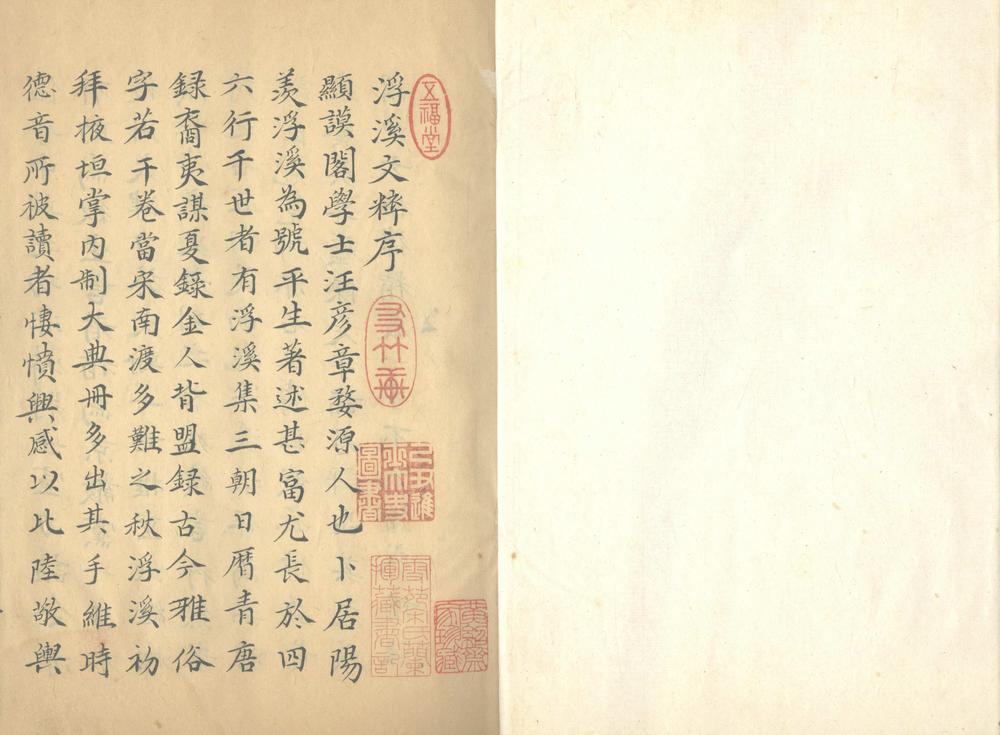 浮溪文粹序
顯謨閣學士汪彦章婺源人也卜居陽
羨浮溪為號平生著述甚富尤長於四
六行千世者有浮溪集三朝日曆青唐
録裔夷謀夏録金人背盟録古今雅俗
字若干卷當宋南渡多難之秋浮溪初
拜掖垣掌内制大典冊多出其手維時
德音所被讀者悽憤興感以比陸敬輿
五福堂
圖書